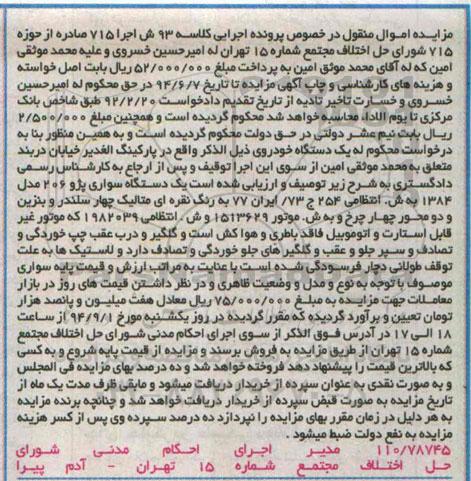 مزایـده امـوال منقول در خصوص پرونده اجرایی کلاسـه ۹۳ ش اجرا ۷۱۵ صادره از حوزه
۷۱۵ شورای حل اختلاف مجتمع شماره ۱۵ تهران له امیرحسین خسروی و علیه محمد موثقی
امین که له آقای محمد موثق امین به پرداخت مبلغ ۵۲/۰۰۰/۰۰۰ ریال بابت اصل خواسته
و هزینه های کارشناسی و چاپ آگهی مزایده تا تاریخ ۹۴/۶/۷ در حق محکوم له امیرحسین
خسروی و خسارت تاخیر تادیه از تاریخ تقدیم دادخواست ۹۲/۲/۲۰ طبق شاخص بانک
مرکزی تا یوم الادا، محاسبه خواهد شد محکوم گردیده است و همچنین مبلغ ۲/۵۰۰/۰۰۰
ریـال بابت نیم عشر دولتی در حق دولت محکوم گردیده اسـت و به همین منظور بنا به
درخواست محکوم له یک دستگاه خودروی ذیل الذکر واقع در پارکینگ الغدیر خیابان دربند
متعلق به محمد موثقی امین از سوی این اجرا توقیف و پس از ارجاع به کارشناس رسمی
دادگستری به شرح زیر توصیف و ارزیابی شده است یک دسـتگاه سواری پژو ۲۰۶ مدل
۱۳۸۴ به ش. انتظامی ۲۵۴ ج ۷۳/ ایران ۷۷ به رنگ نقره ای متالیک چهار سلندر و بنزین
و دو محور چهار چرخ و به ش. موتور ۱۵۱۳۶۲۹ و ش. انتظامی ۱۹۸۲۰۳۹ که موتور غیر
قابل استارت و اتوموبیل فاقد باطری و هوا کش است و گلگیر و درب عقب چپ خوردگی و
تصادف و سپر جلو و عقب و گلگیر های جلو خوردگی و تصادف دارد و لاستیک ها به علت
توقف طولانی دچار فرسـودگی شـده اسـت با عنایت به مراتب ارزش و قیمت پایه سواری
موصـوف با توجه به نوع و مدل و وضعیت ظاهری و در نظر داشـتن قیمت های روز در بازار
معامـلات جهت مزایـده به مبلـغ ۷۵/۰۰۰/۰۰۰ ریال معادل هفت میلیـون و پانصد هزار
تومان تعیین و برآورد گردیده که مقرر گردیده در روز یکشـنبه مورخ ۹۴/۹/۱ از سـاعت
۱۸ الی ۱۷ در آدرس فوق الذکر از سوی اجرای احکام مدنی شورای حل اختلاف مجتمع
شماره ۱۵ تهران از طریق مزایده به فروش برسند و مزایده از قیمت پایه شروع و به کسی
که بالاترین قیمت را پیشنهاد دهد فروخته خواهد شد و ده درصد بهای مزایده فی المجلس
و به صورت نقدی به عنوان سپرده از خریدار دریافت میشود و مابقی ظرف مدت یک ماه از
تاریخ مزایده به صورت قبض سـپرده از خریدار دریافت خواهد شـد و چنانچه برنده مزایده
به هر دلیل در زمان مقرر بهای مزایده را نپردازد ده درصد سـپرده وی پس از کسر هزینه
مزایده به نفع دولت ضبط میشود .
۱۱۰/۷۸۷۴۵ مدیـر اجرای احکام مدنـی شورای
حل اختلاف مجتمع شماره ۱۵ تهران - آدم پیـرا